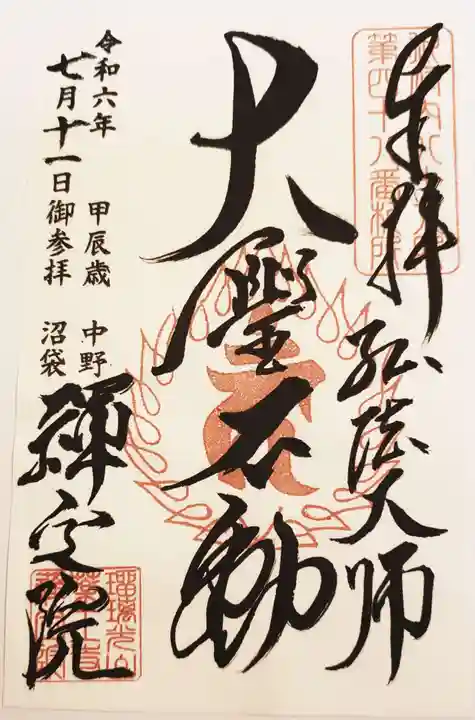 奉拝
弘法大師
大聖不動
令和六年
七月十一日御参拝
甲辰歳
中野
沼袋
禅定院
第四十八番札所
瑠璃光山